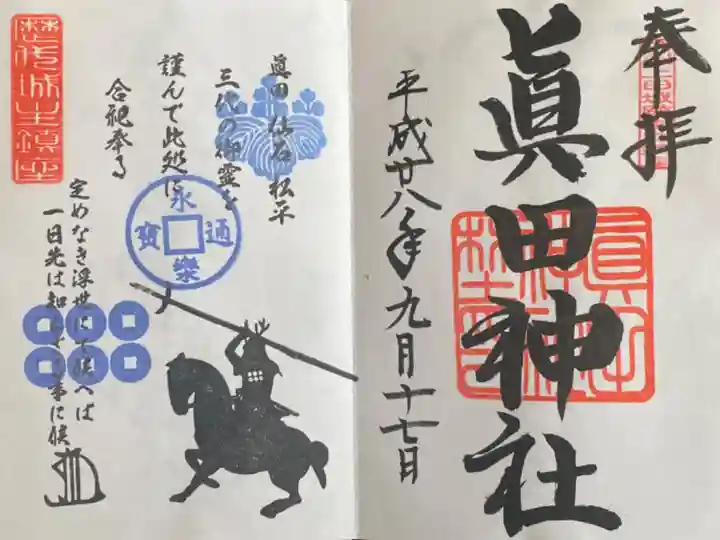 奉拝
眞田神社
平成廿八年九月十七日
眞田 仙石 松平
三代の御霊を
謹んで此処に
合祀奉る
歴代城主鎮座
永樂通寳
定めなき浮世にて候へば
一日先は知れざる事に候